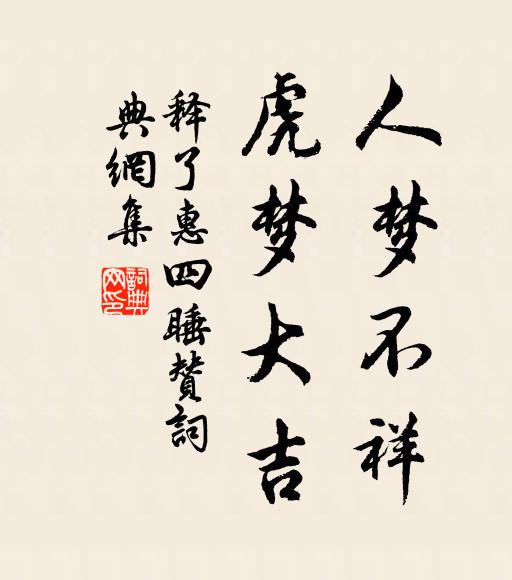 人梦不祥
虎梦大吉
释了惠四睡赞詞
典網集
詞典
网印